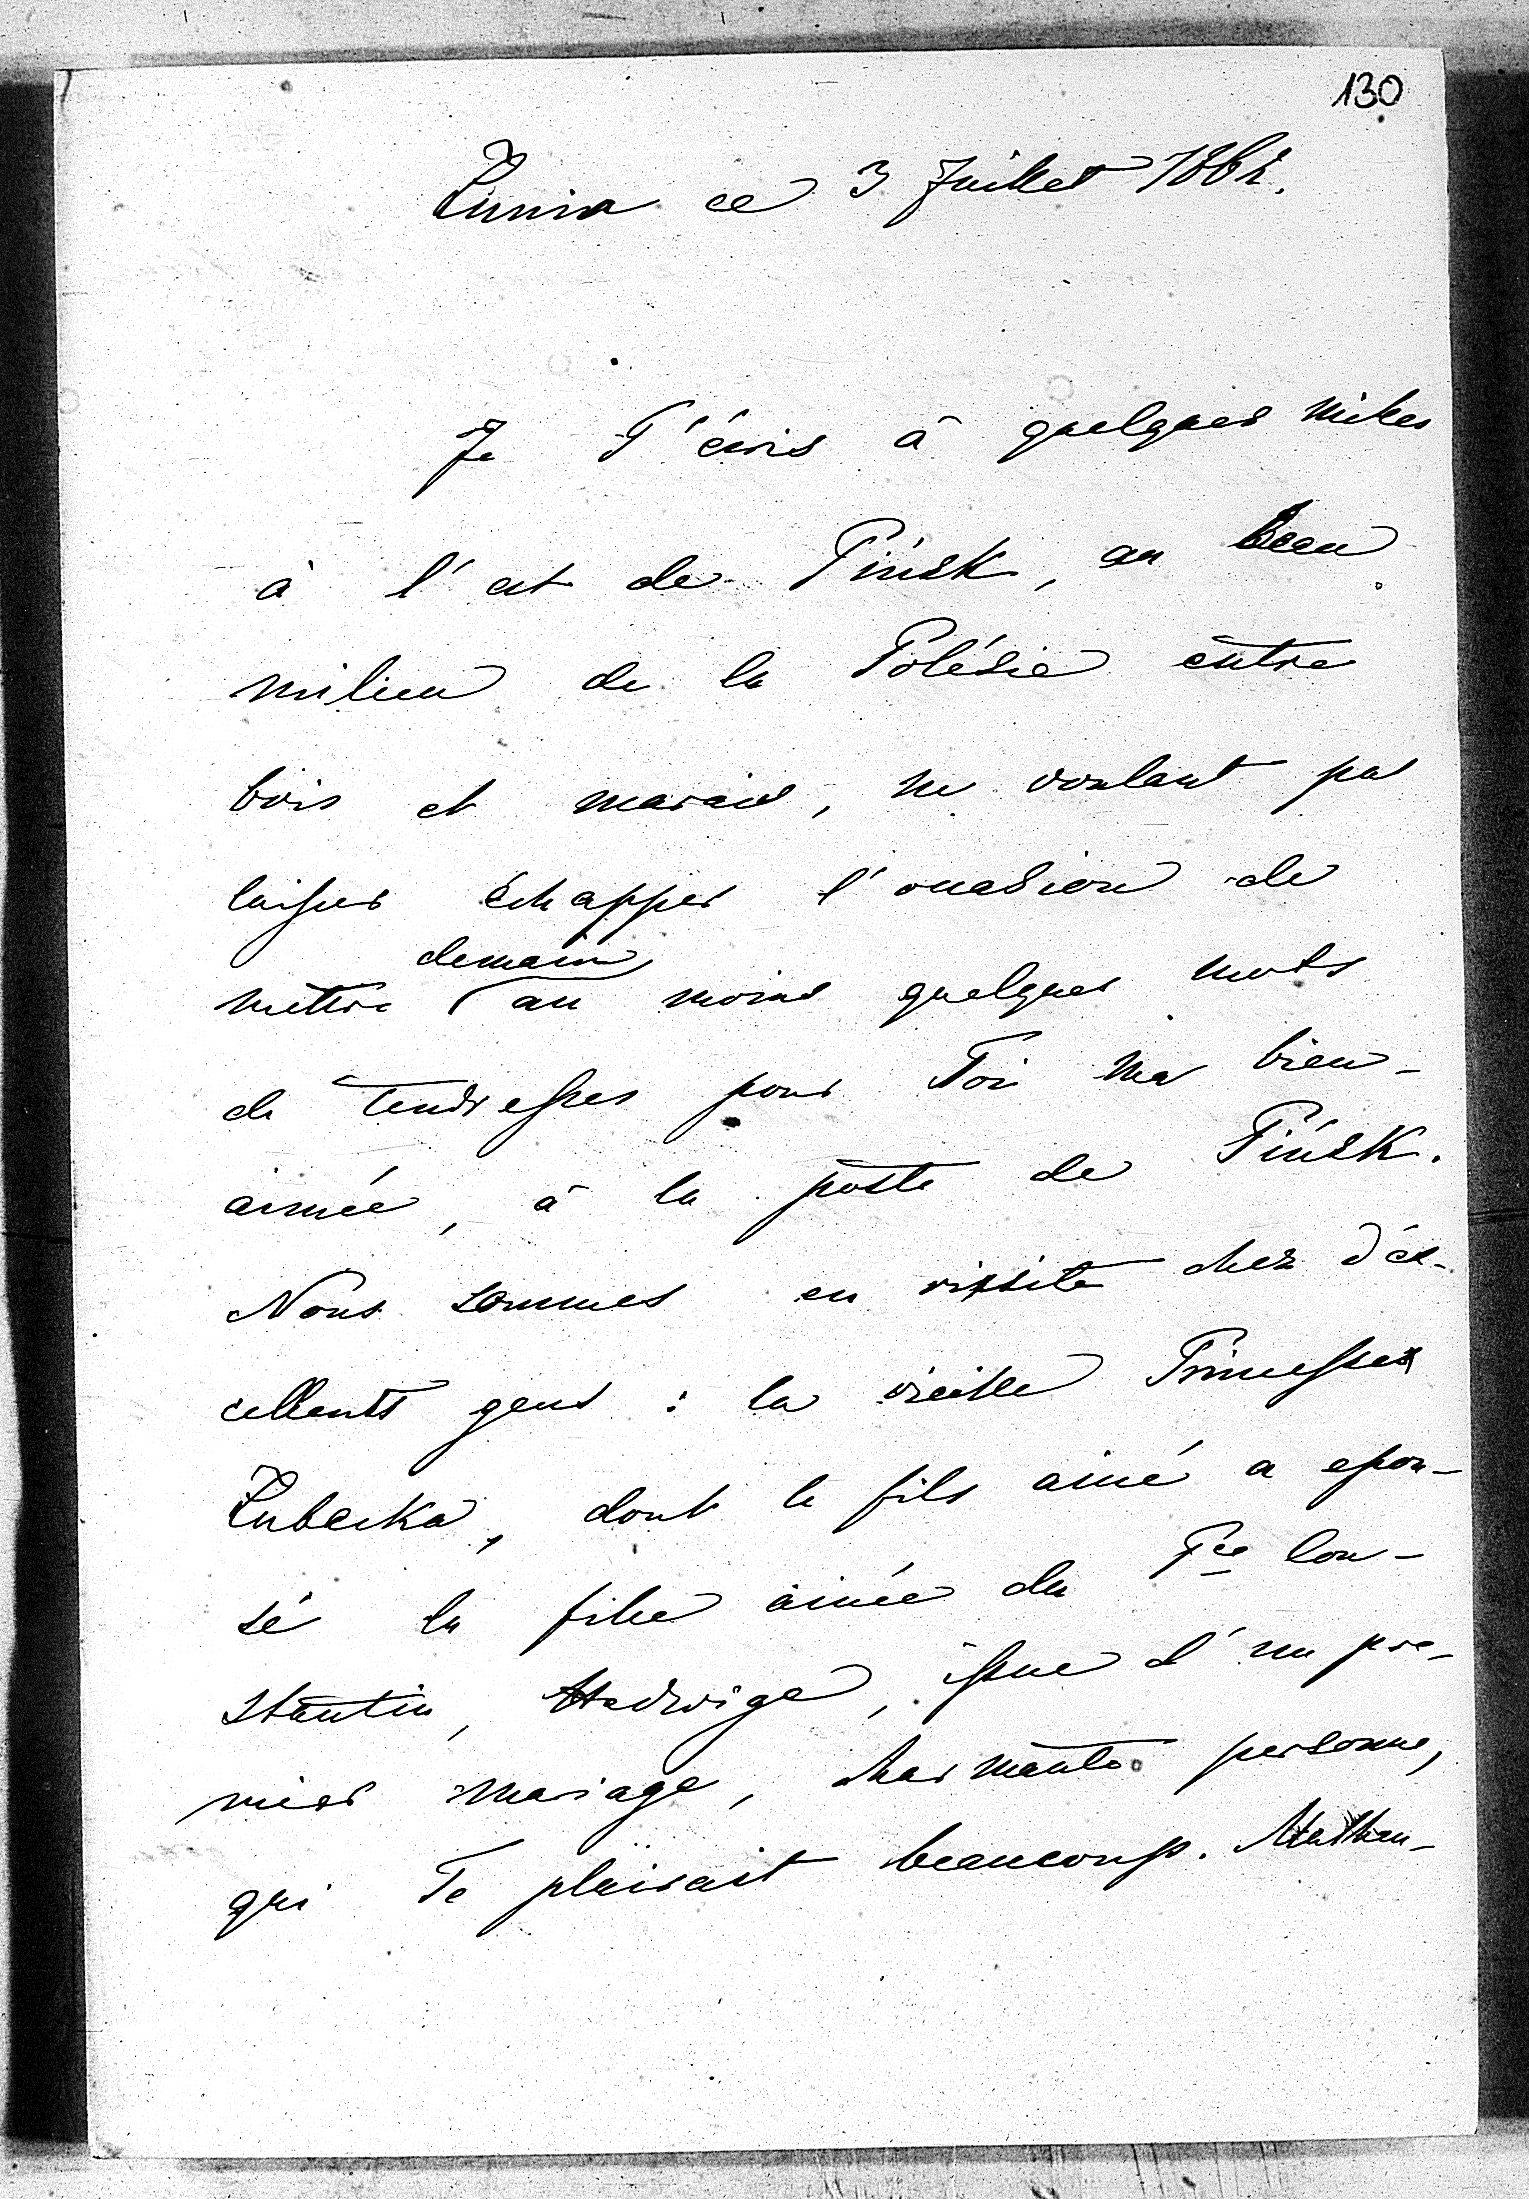 130
Łunin ce 3 Juillet 1862.
Je T'écris à quelques milles
à l'est de Pińsk, au beau
milieu de la Polésie entre
bois et marais, ne voulant pas
laisser échapper l'occasion de
demain
mettre au moins quelques mots
de tendresses pour Toi ma bien-
aimée, à la poste de Pińsk.
Nous sommes en visite chez d'ex-
cellents gens : la vieille Princesse
Lubecka, dont le fils ainé a epou-
sé la fille ainée du Pce Con-
stantin, Hedwige, issue d'un pre-
mier mariage, charmante personne,
qui Te plaisait beaucoup. Malheu-